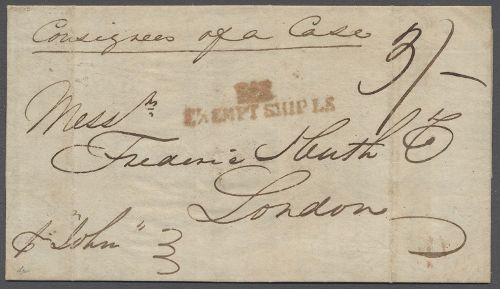 Consignees of a Case
3/-
EXEMPT SHIP LS
Messrs
Frederic Huth & Co
London
pr "John"